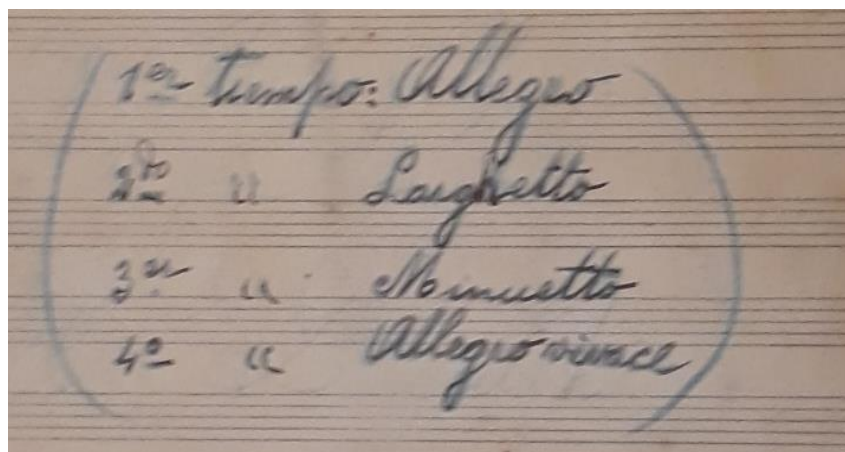 (1er tiempo: Allegro
2do " Larghetto
3er " Minuetto
4º " Allegro vivace)